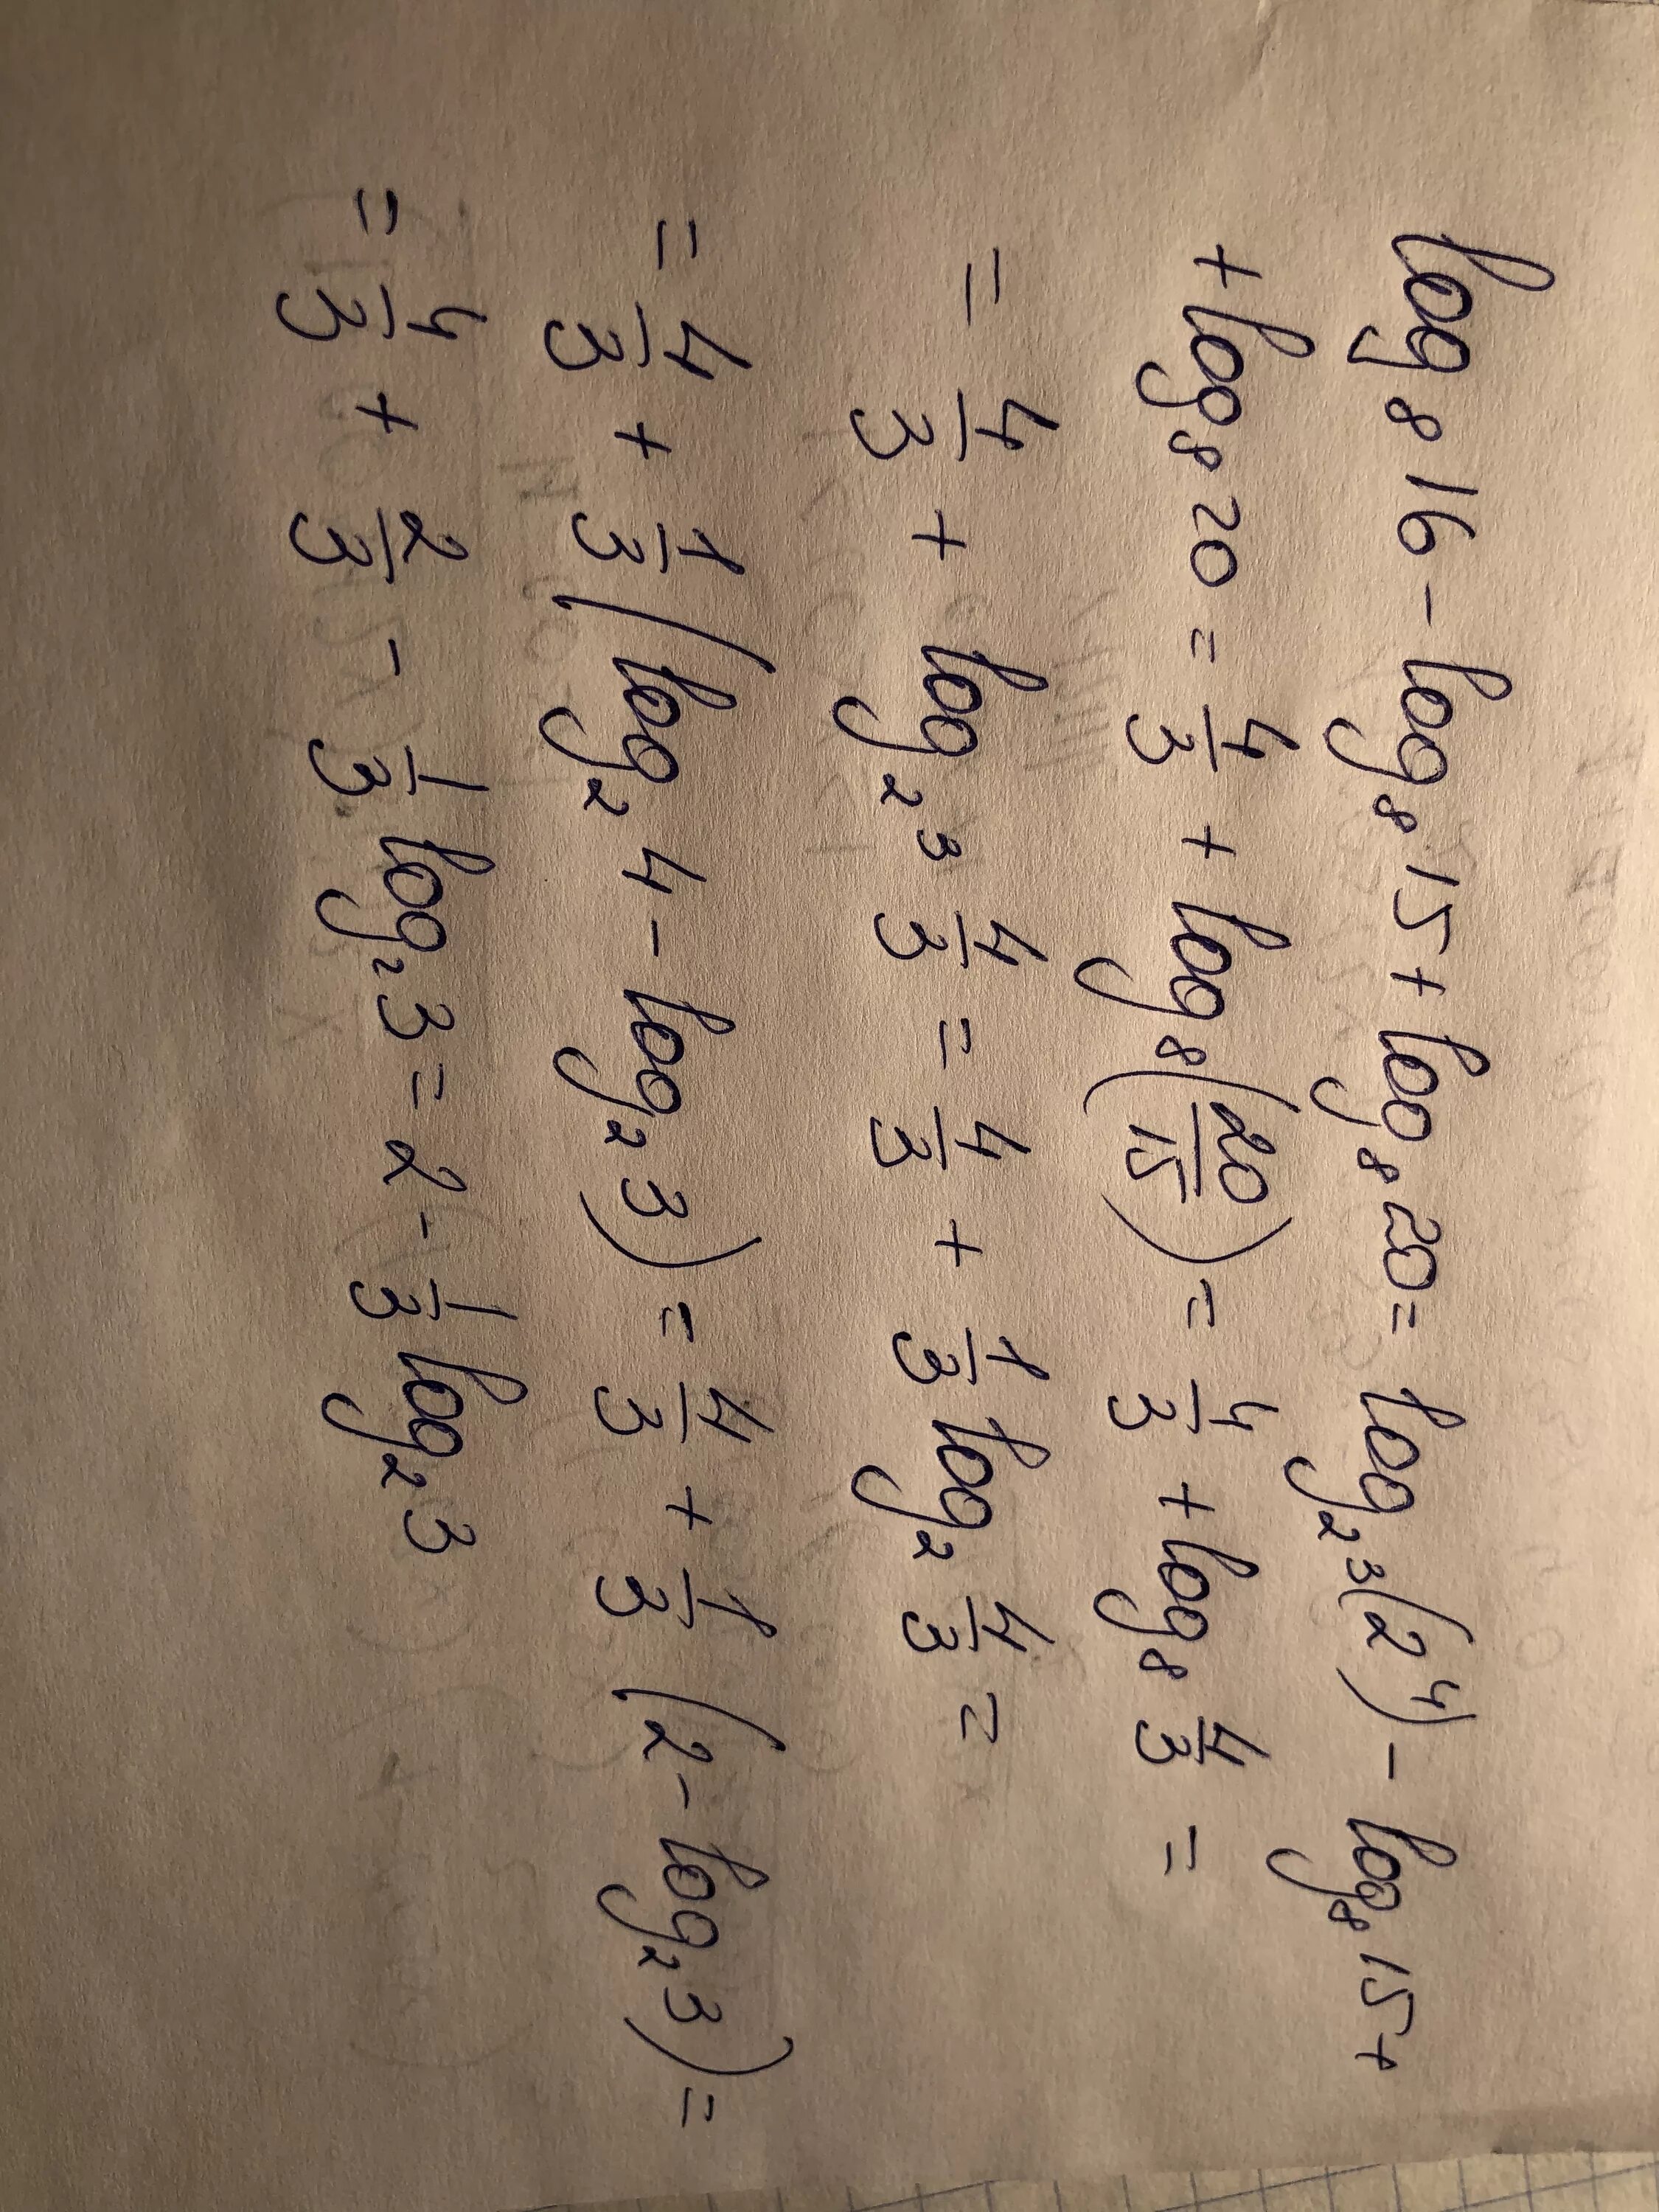 log₈ 16 - log₈ 15 + log₈ 20 = log₂³(2⁴) - log₈ 15 +
+ log₈ 20 = 4/3 + log₈(20/15) = 4/3 + log₈ 4/3 =
= 4/3 + log₂³ 4/3 = 4/3 + 1/3 log₂ 4/3 =
= 4/3 + 1/3 (log₂ 4 - log₂ 3) = 4/3 + 1/3 (2 - log₂ 3) =
= 4/3 + 2/3 - 1/3 log₂ 3 = 2 - 1/3 log₂ 3